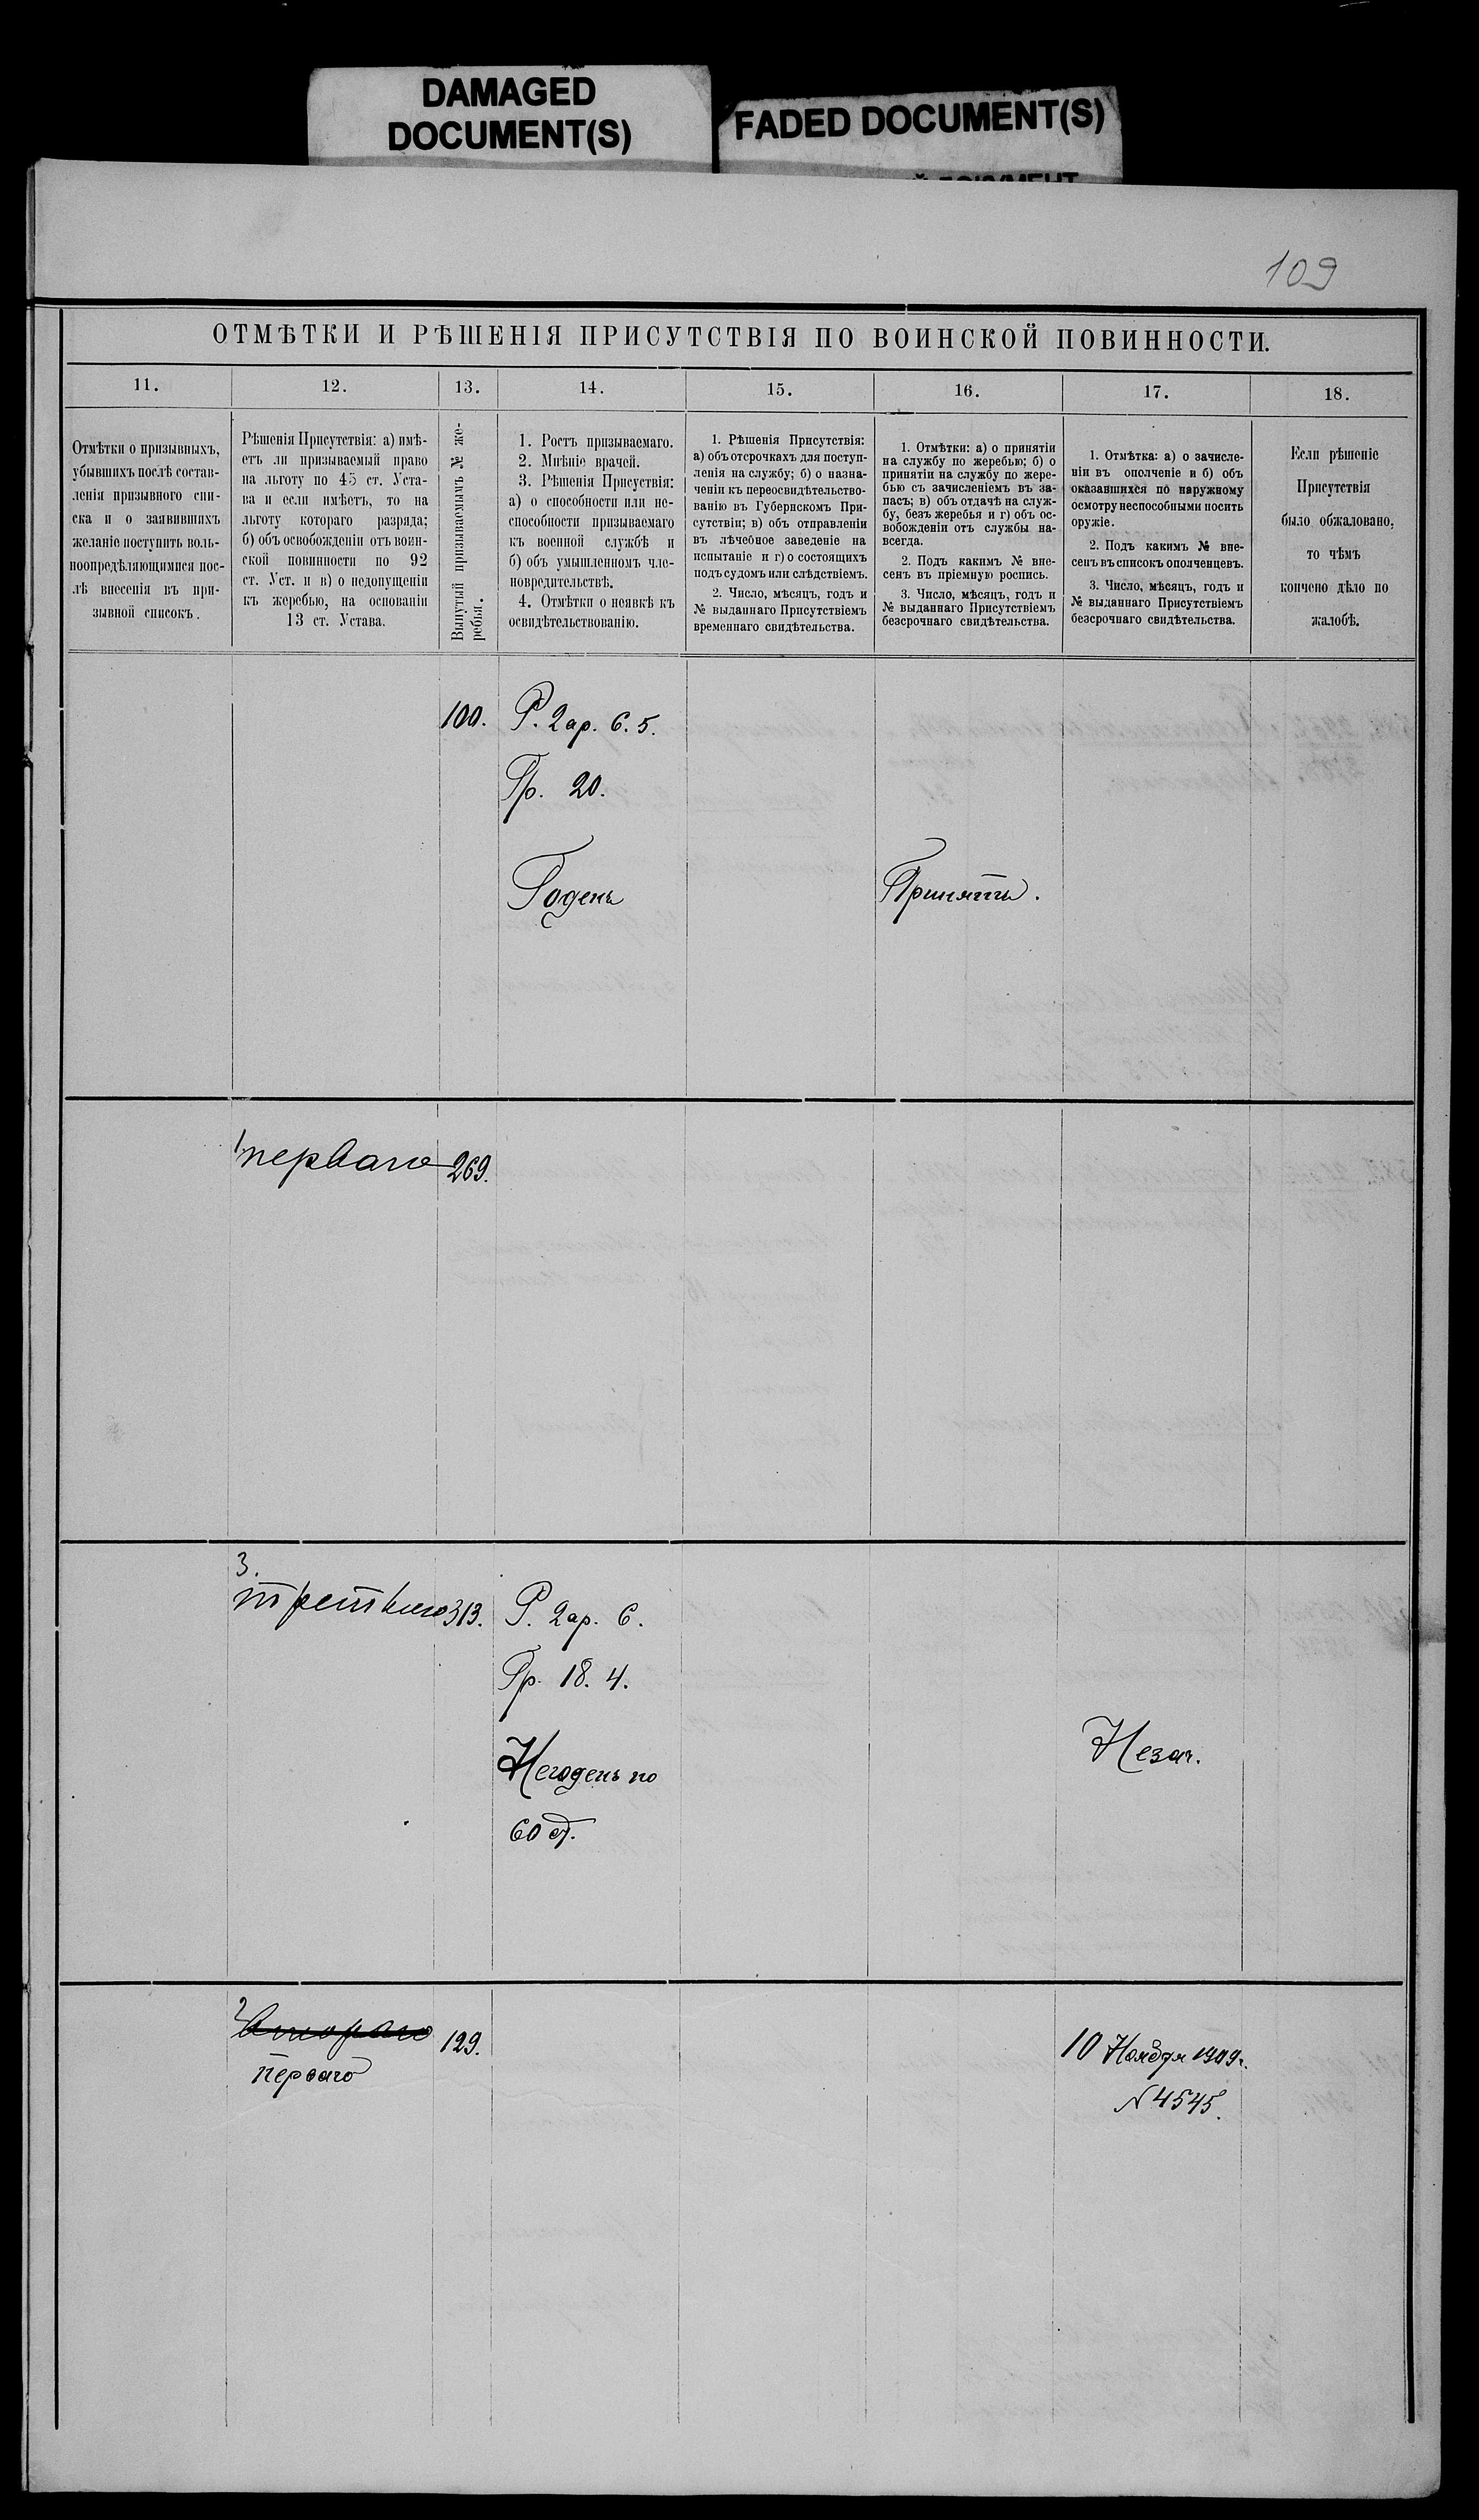 DAMAGED
DOCUMENT(S)
FADED DOCUMENT(S)
109
ОТМѢТКИ И РѢШЕНІЯ ПРИСУТСТВІЯ ПО ВОИНСКОЙ ПОВИННОСТИ.
11.
12.
13.
14.
15.
16.
17.
18.
Отмѣтки о призывныхъ,
убывшихъ послѣ состав-
ленія призывного спи-
ска и о заявившихъ
желаніе поступить воль-
ноопредѣляющимися пос-
лѣ внесенія въ при-
зывной списокъ.
Рѣшенія Присутствія: а) имѣ-
етъ ли призываемый право
на льготу по 45 ст. Уста-
ва и если имѣетъ, то на
льготу котораго разряда;
б) объ освобожденіи отъ воин-
ской повинности по 92
ст. Уст. и в) о недопущеніи
къ жеребью, на основаніи
13 ст. Устава.
Вынутый призываемымъ № же-
ребья.
1. Ростъ призываемаго.
2. Мнѣніе врачей.
3. Рѣшенія Присуствія:
а) о способности или не-
способности призываемаго
къ военной службѣ и
б) объ умышленномъ чле-
новредительствѣ.
4. Отмѣтки о неявкѣ къ
освидѣтельствованію.
1. Рѣшенія Присутствія:
а) объ отсрочкахъ для поступ-
ленія на службу; б) о назна-
ченіи къ переосвидѣтельство-
ванію въ Губернскомъ При-
сутствіи; в) объ отправленіи
въ лѣчебное заведеніе на
испытаніе и г) о состоящихъ
подъ судомъ или слѣдствіемъ.
2. Число, мѣсяцъ, годъ и
№ выданнаго Присутствіемъ
временнаго свидѣтельства.
1. Отмѣтки: а) о принятіи
на службу по жеребью; б) о
принятіи на службу по жере-
бью съ зачисленіемъ въ за-
пасъ; в) объ отдачѣ на служ-
бу, безъ жеребья и г) объ ос-
вобожденіи отъ службы на-
всегда.
2. Подъ какимъ № вне-
сенъ въ пріемную роспись.
3. Число, мѣсяцъ, годъ и
№ выданнаго Присутствіемъ
безсрочнаго свидѣтельства.
1. Отмѣтка: а) о зачисле-
ніи въ ополченіе и б) объ
оказавшихся по наружному
осмотру неспособными носить
оружіе.
2. Подъ какимъ № вне-
сенъ въ списокъ ополченцевъ.
3. Число, мѣсяцъ, годъ и
№ выданнаго Присутствіемъ
безсрочнаго свидѣтельства.
Если рѣшеніе
Присутствія
было обжаловано,
то чѣмъ
кончено дѣло по
жалобѣ.
100.
Р. 2 ар. 6.5.
Гр. 20.
Годенъ
Принятъ.
1
перваго
269.
3.
третьяго
313.
Р. 2 ар. 6.
Гр. 18. 4.
Негоденъ по
60 ст.
Незач.
2
Второго
перваго
129.
10 Ноября 1909 г.
№ 4545.